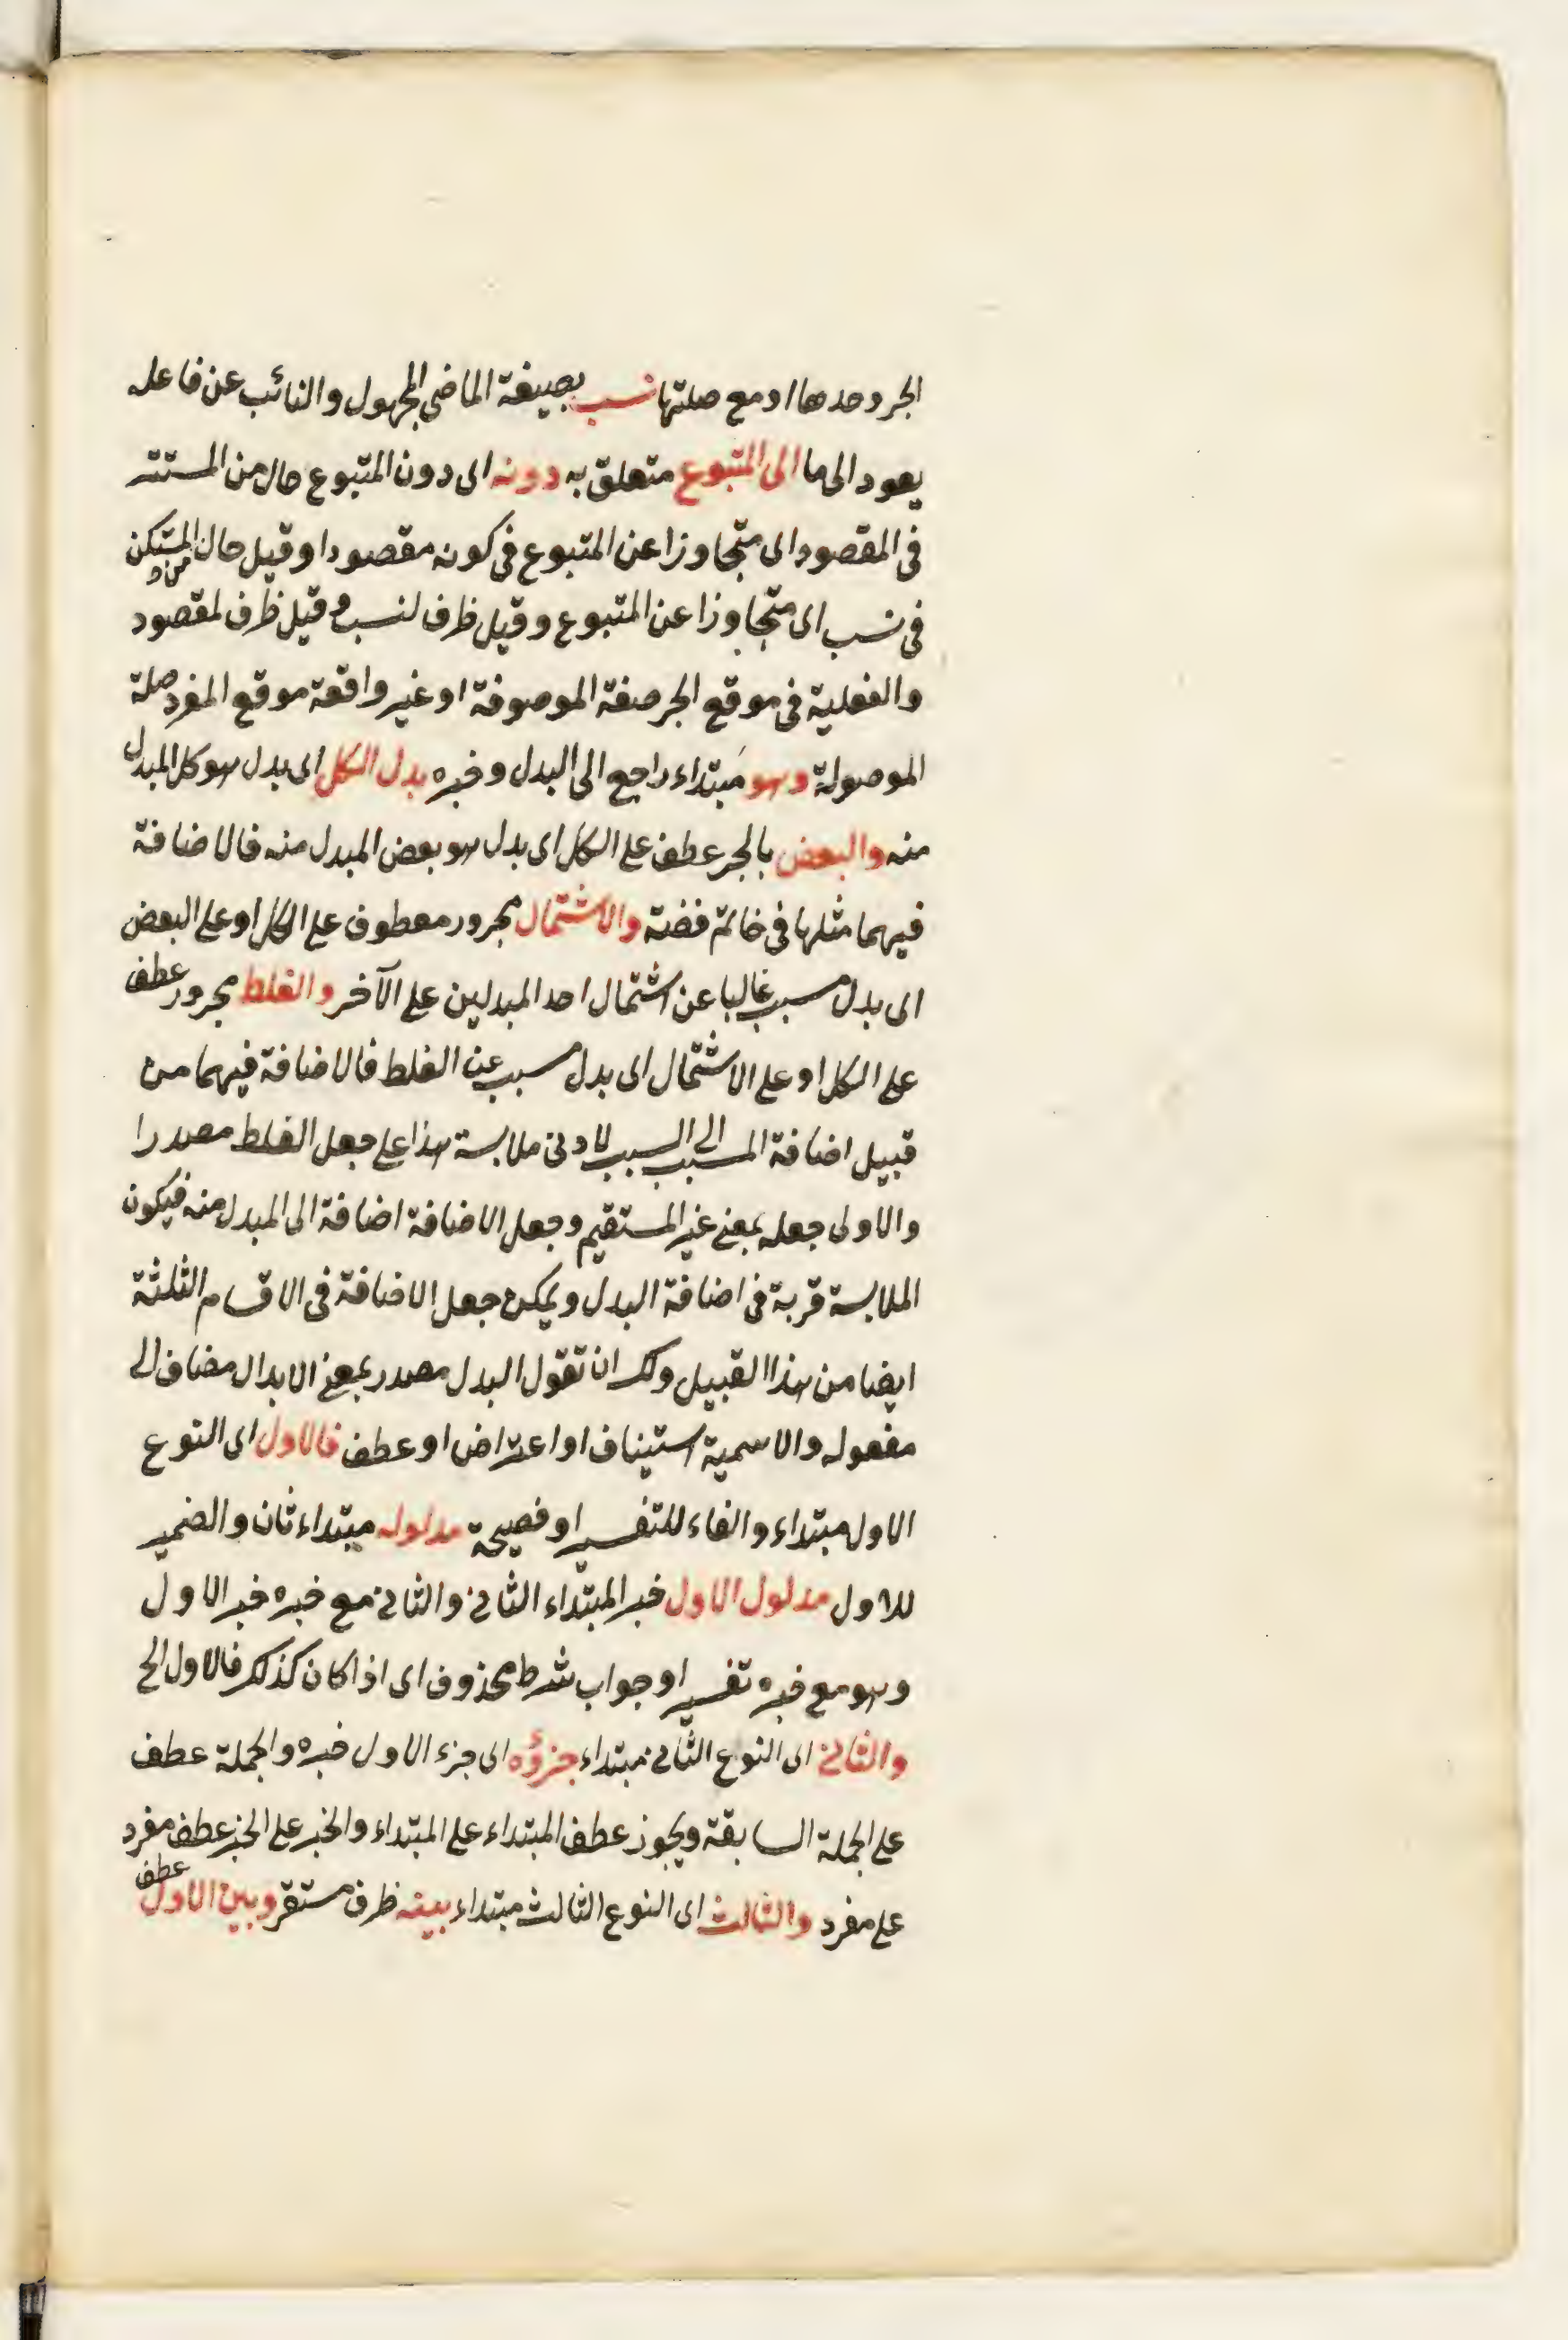 الجر وحدها او مع صلتها نسب بصيغة الماضى المجهول والنائب عن فاعله
يعود الى ما الى المتبوع متعلق به دونه اى دون المتبوع حال من المستتر
فى المقصود اى متجاوزا عن المتبوع فى كونه مقصودا وقيل حال من المستكن
فى نسب اى متجاوزا عن المتبوع وقيل ظرف لنسب وقيل ظرف لمقصود
والفعلية فى موقع الجر صفة الموصوفة او غير واقعة موقع المفرد صلة
الموصولة وهو مبتداء راجع الى البدل وخبره بدل الكل اى بدل هو كل المبدل
منه والبعض بالجر عطف على الكل اى بدل هو بعض المبدل منه فالاضافة
فيهما مثلها فى خاتم فضة والاشتمال مجرور معطوف على الكل او على البعض
اى بدل مسبب غالبا عن اشتمال احد المبدلين على الآخر والغلط مجرور عطف
على الكل او على الاشتمال اى بدل مسبب عن الغلط فالاضافة فيهما من
قبيل اضافة المسبب الى السبب لادنى ملابسة هذا على جعل الغلط مصدرا
والاولى جعله بمعنى غير المستقيم وجعل الاضافة اضافة الى المبدل منه فيكون
الملابسة قربة فى اضافة البدل ويمكن جعل الاضافة فى الاقسام الثلثة
ايضا من هذا القبيل ولك ان تقول البدل مصدر بمعنى الابدال مضاف الى
مفعوله والاسمية استيناف او اعتراض او عطف فالاول اى النوع
الاول مبتداء والفاء للتفسير او فصيحة مدلوله مبتداء ثان والضمير
للاول مدلول الاول خبر المبتداء الثانى والثانى مع خبره خبر الاول
وهو مع خبره تفسير او جواب شرط محذوف اى اذا كان كذلك فالاول الخ
والثانى اى النوع الثانى مبتداء جزؤه اى جزء الاول خبره والجملة عطف
على الجملة السابقة ويجوز عطف المبتداء على المبتداء والخبر على الخبر عطف مفرد
على مفرد والثالث اى النوع الثالث مبتداء بينه ظرف مستقر وبين الاول عطف